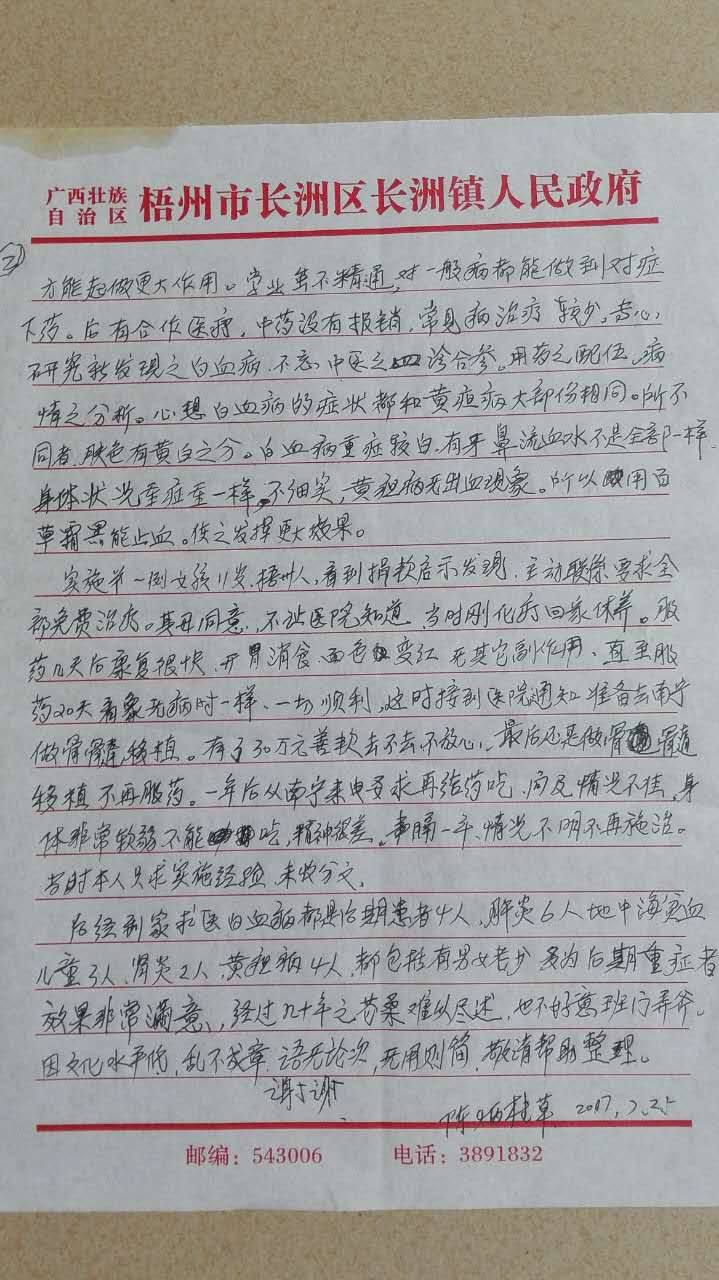 广西壮族
自治区
梧州市长洲区长洲镇人民政府
②
方能起做更大作用。学业虽不精通,对一般病都能做到对症
下药。后有合作医疗,中药没有报销,常见病治疗较少,专心
研究新发现之白血病,不忘中医之诊合参。用药之配伍。病
情之分析。心想白血病的症状都和黄疸病大部份相同。所不
同者,肤色有黄白之分。白血病重症较白,有牙鼻流血水不是全部一样,
身体状况重症重一样,不细实,黄疸病无出血现象。所以用百
草霜黑能止血。使之发挥更大效果。
实施第一例女孩11岁,梧州人,看到捐款启示发现,主动联系要求全
部免费治疗。其母同意,不让医院知道,当时刚化疗回家休养。服
药几天后康复很快,开胃消食,面色变红,无其它副作用、直至服
药20天看象无病时一样、一切顺利,这时接到医院通知准备去南宁
做骨髓移植。有了30万元善款去不去不放心,最后还是做骨髓
移植不再服药。一年后从南宁来电要求再给药吃,问及情况不佳,身
体非常软弱不能吃,精神很差。事隔一年、情况不明不再施治。
当时本人只求实施经验,未收分文,
后经到家求医白血病都是后期患者4人,肝炎6人地中海贫血
儿童3人,肾炎2人,黄疸病4人,都包括有男女老少多为后期重症者
效果非常满意、经过几十年之苦柔难以尽述,也不好意班门弄斧。
因文化水平低,乱不成章,语无论次,无用则简,敬请帮助整理。
谢谢
陈炳桂草 2017,7.25
邮编:543006 电话:3891832